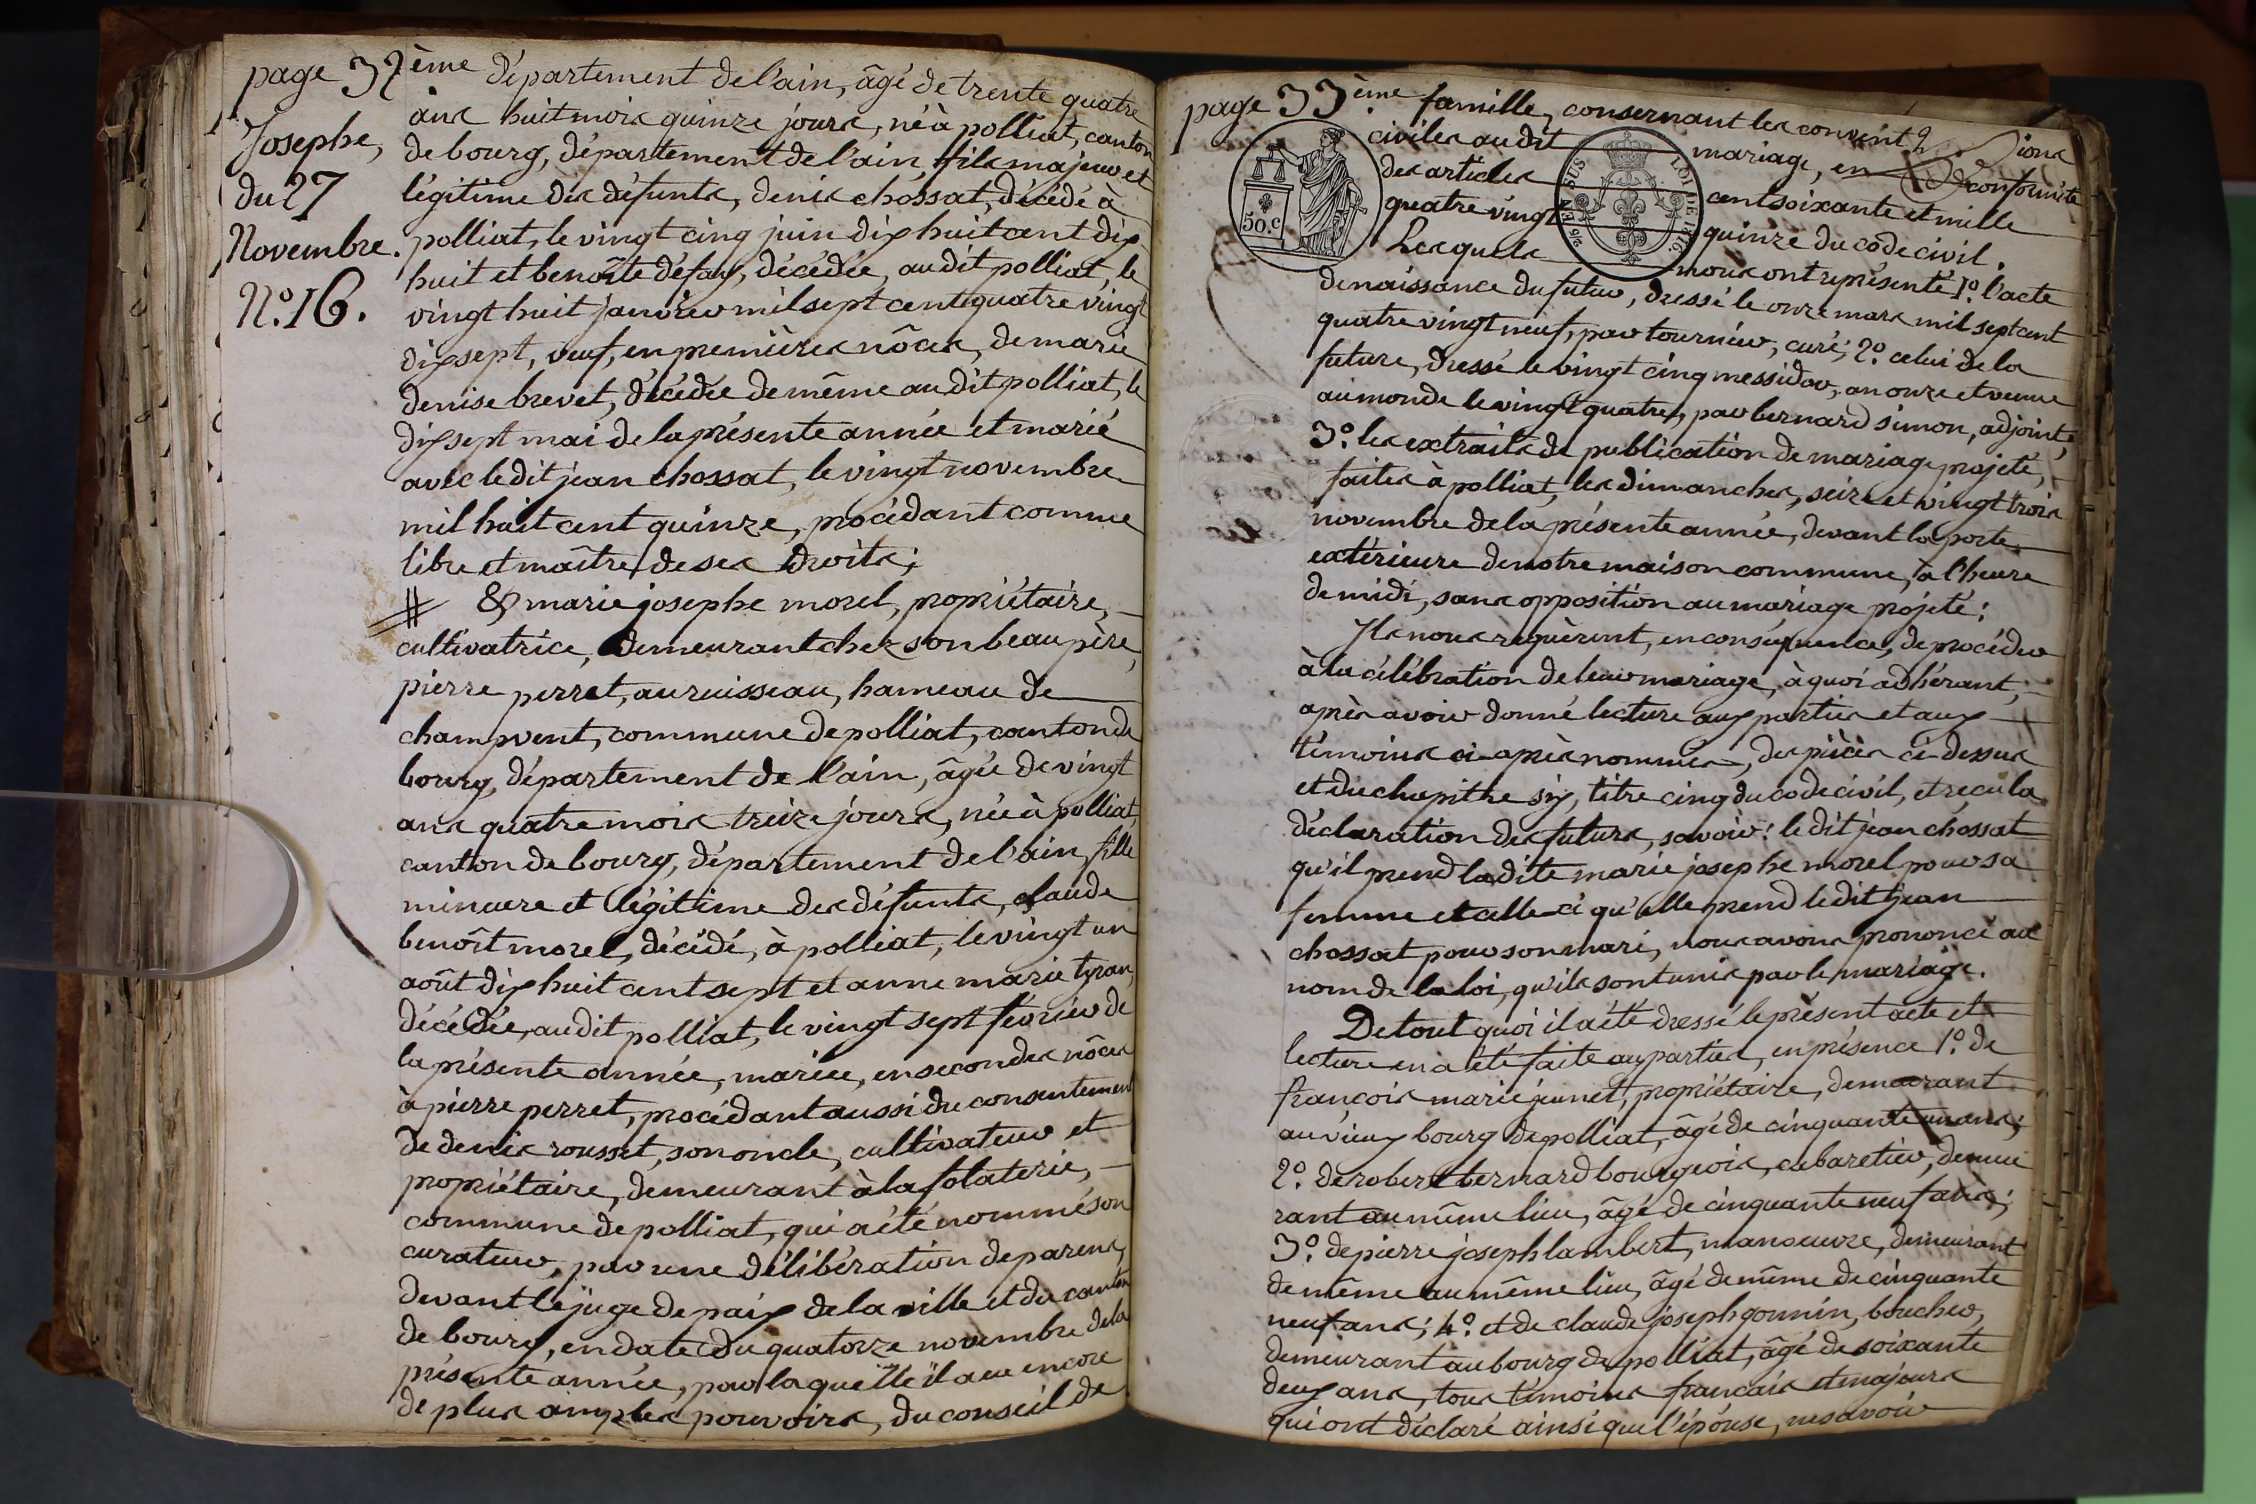 page 32ème
Josephe,
du 27
Novembre.
N.o 16.
département de l'ain, âgé de trente quatre
ans huit mois quinze jours, né à polliat, canton
de bourg, département de l'ain, fils majeur et
légitime des défunts, denis chossat, décédé à
polliat, le vingt cinq juin dix huit cent dix
huit et benoîte défay, décédée, audit polliat, le
vingt huit janvier mil sept cent quatre vingt
dix sept, veuf, en premières nôces, de marie
denise brevet, décédée de même audit polliat, le
dix sept mai de la présente année et marié
avec ledit jean chossat, le vingt novembre
mil huit cent quinze, procédant comme
libre et maître de ses droits;
& marie josephe morel, propriétaire,
cultivatrice, demeurant chez son beau père,
pierre perret, au ruisseau, hameau de
champvent, commune de polliat, canton de
bourg, département de l'ain, âgée de vingt
ans quatre mois treize jours, née à polliat,
canton de bourg, département de l'ain, fille
mineure et légitime des défunts, claude
benoît morel, décédé, à polliat, le vingt un
août dix huit cent sept et anne marie tyran,
décédée, audit polliat, le vingt sept février de
la présente année, mariée, en secondes nôces
à pierre perret, procédant aussi du consentement
de denis rousset, son oncle, cultivateur et
propriétaire, demeurant à la folaterie,
commune de polliat, qui a été nommé son
curateur, par une délibération de parens,
devant le juge de paix de la ville et du canton
de bourg, en date du quatorze novembre de la
présente année, par laquelle il a eu encore
de plus amples pouvoirs, du conseil de
page 33ème
famille, consernant les conventions
civiles audit mariage, en conformité
des articles cent soixante et mille
quatre vingt quinze du côde civil.
50.c
LOI DE 1816.
Lesquels nous ont représenté 1.o l'acte
de naissance du futur, dressé le onze mars mil sept cent
quatre vingt neuf, par tournier, curé; 2.o celui de la
future, dressé le vingt cinq messidor, an onze et venue
au monde le vingt quatre, par bernard simon, adjoint;
3.o les extraits de publication de mariage projeté,
faites à polliat, les dimanches, seize et vingt trois
novembre de la présente année, devant la porte
extérieure de notre maison commune, à l'heure
de midi, sans opposition au mariage projeté:
Ils nous requèrent, en conséquence, de procéder
à la célébration de leur mariage, à quoi adhérant,
après avoir donné lecture aux parties et aux
témoins ci-après nommés, des pièces ci-dessus
et du chapitre six, titre cinq du code civil, et reçu la
déclaration des futurs, savoir: ledit jean chossat
qu'il prend ladite marie josephe morel pour sa
femme et celle-ci qu'elle prend ledit jean
chossat pour son mari, nous avons prononcé au
nom de la loi, qu'ils sont unis par le mariage.
De tout quoi il a été dressé le présent acte et
lecture en a été faite aux parties, en présence 1.o de
françois marie junet, propriétaire, demeurant
au vieux bourg de polliat, âgé de cinquante un ans;
2.o de robert bernard bourgeois, cabaretier, demeu
rant au même lieu, âgé de cinquante neuf ans;
3.o de pierre joseph lambert, manoeuvre, demeurant
de même au même lieu, âgé de même de cinquante
neuf ans; 4.o et de claude joseph gonnin, boucher,
demeurant au bourg de polliat, âgé de soixante
deux ans, tous témoins français et majeurs
qui ont déclaré ainsi que l'épouse, ne savoir